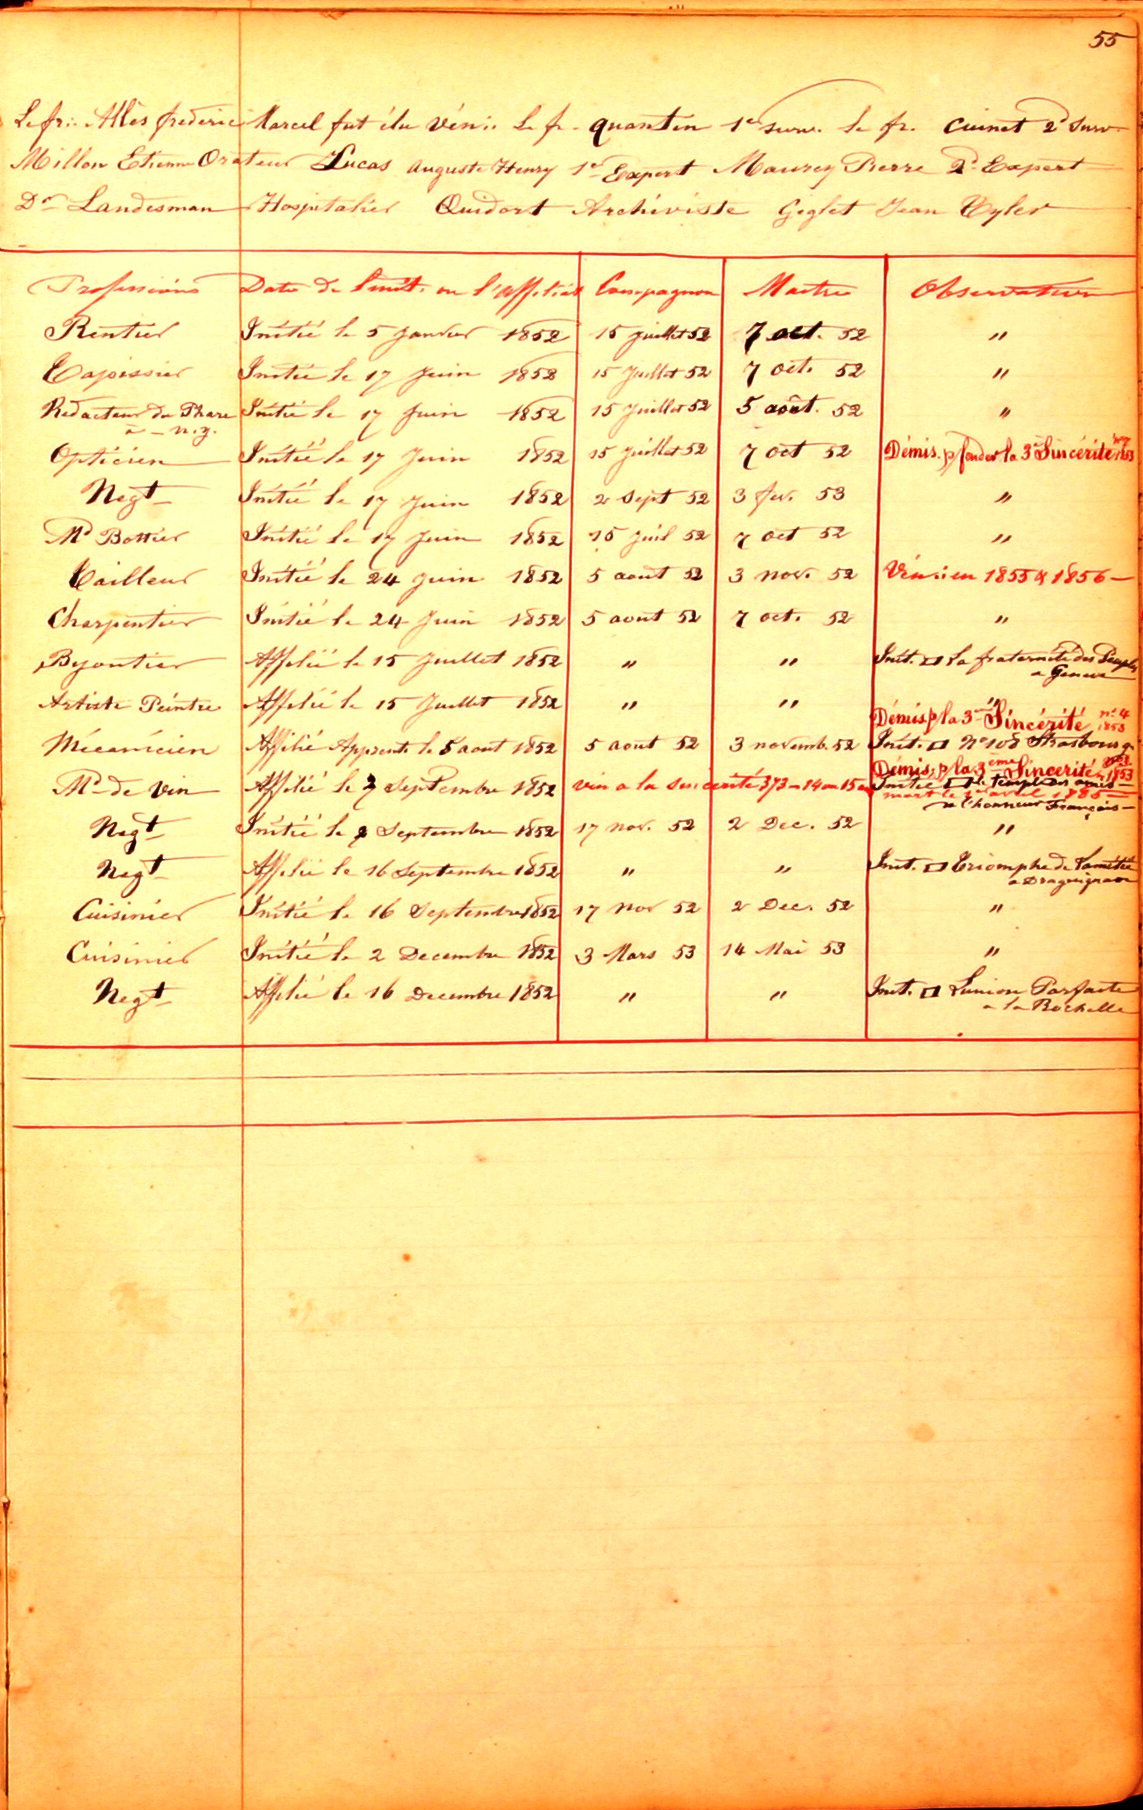 55
Le fr∴ Allès frederic Marcel fut élu Vén∴ Le fr. quantin 1er surv. le fr. Cuinet 2d Surv
Millon Etienne Orateur Lucas Auguste Henry 1er Expert Maurey Pierre 2d Expert
Dor Landesman Hospitalier Quidort Archiviste Geglet Jean Tyler
Professions Date de l'init. ou l'affiliat Compagnon Maitre Observation
Rentier Initié le 5 Janvier 1852 15 juillet 52 7 oct. 52 "
Tapissier Initié le 17 Juin 1852 15 Juillet 52 7 oct. 52 "
Redacteur du Phare Initié le 17 Juin 1852 15 Juillet 52 5 août. 52 "
à - n.y.
Opticien Initié le 17 Juin 1852 15 juillet 52 7 oct 52 Démis. p fonder la 3e Sincérité 1853
Negt Initié le 17 Juin 1852 2 Sept 52 3 fev. 53 "
Md Bottier Initié le 17 Juin 1852 15 juil 52 7 oct 52 "
Tailleur Initié le 24 Juin 1852 5 aout 52 3 nov. 52 Vén∴ en 1855 & 1856
Charpentier Initié le 24 Juin 1852 5 aout 52 7 oct. 52 "
Byoutier Affilié le 15 Juillet 1852 " " Init. □ La fraternité des Peuples
a Geneve
Artiste Peintre Affilié le 15 Juillet 1852 " " "
Démis p la 3me Sincérité no 4 1853
Mécanicien Affilié Apprenti le 5 aout 1852 5 aout 52 3 novemb. 52 Init. □ No 108 Strasbourg
Démis. p la 3eme Sincerité 1853
Md de vin Affilié le 2 Septembre 1852 vin a la sincerité 373 - 14 - 15 Initié □ le temple des amis
mort le 1er avril 1885
de l'honneur Français
Negt Initié le 2 Septembre 1852 17 nov. 52 2 Dec. 52 "
Negt Affilié le 16 Septembre 1852 " " Init. □ Triomphe de l'amitié
a Draguignan
Cuisinier Initié le 16 Septembre 1852 17 Nov 52 2 Dec. 52 "
Cuisinier Initié le 2 Decembre 1852 3 Mars 53 14 Mai 53 "
Negt Affilié le 16 Decembre 1852 " " Init. □ L'union Parfaite
a la Rochelle